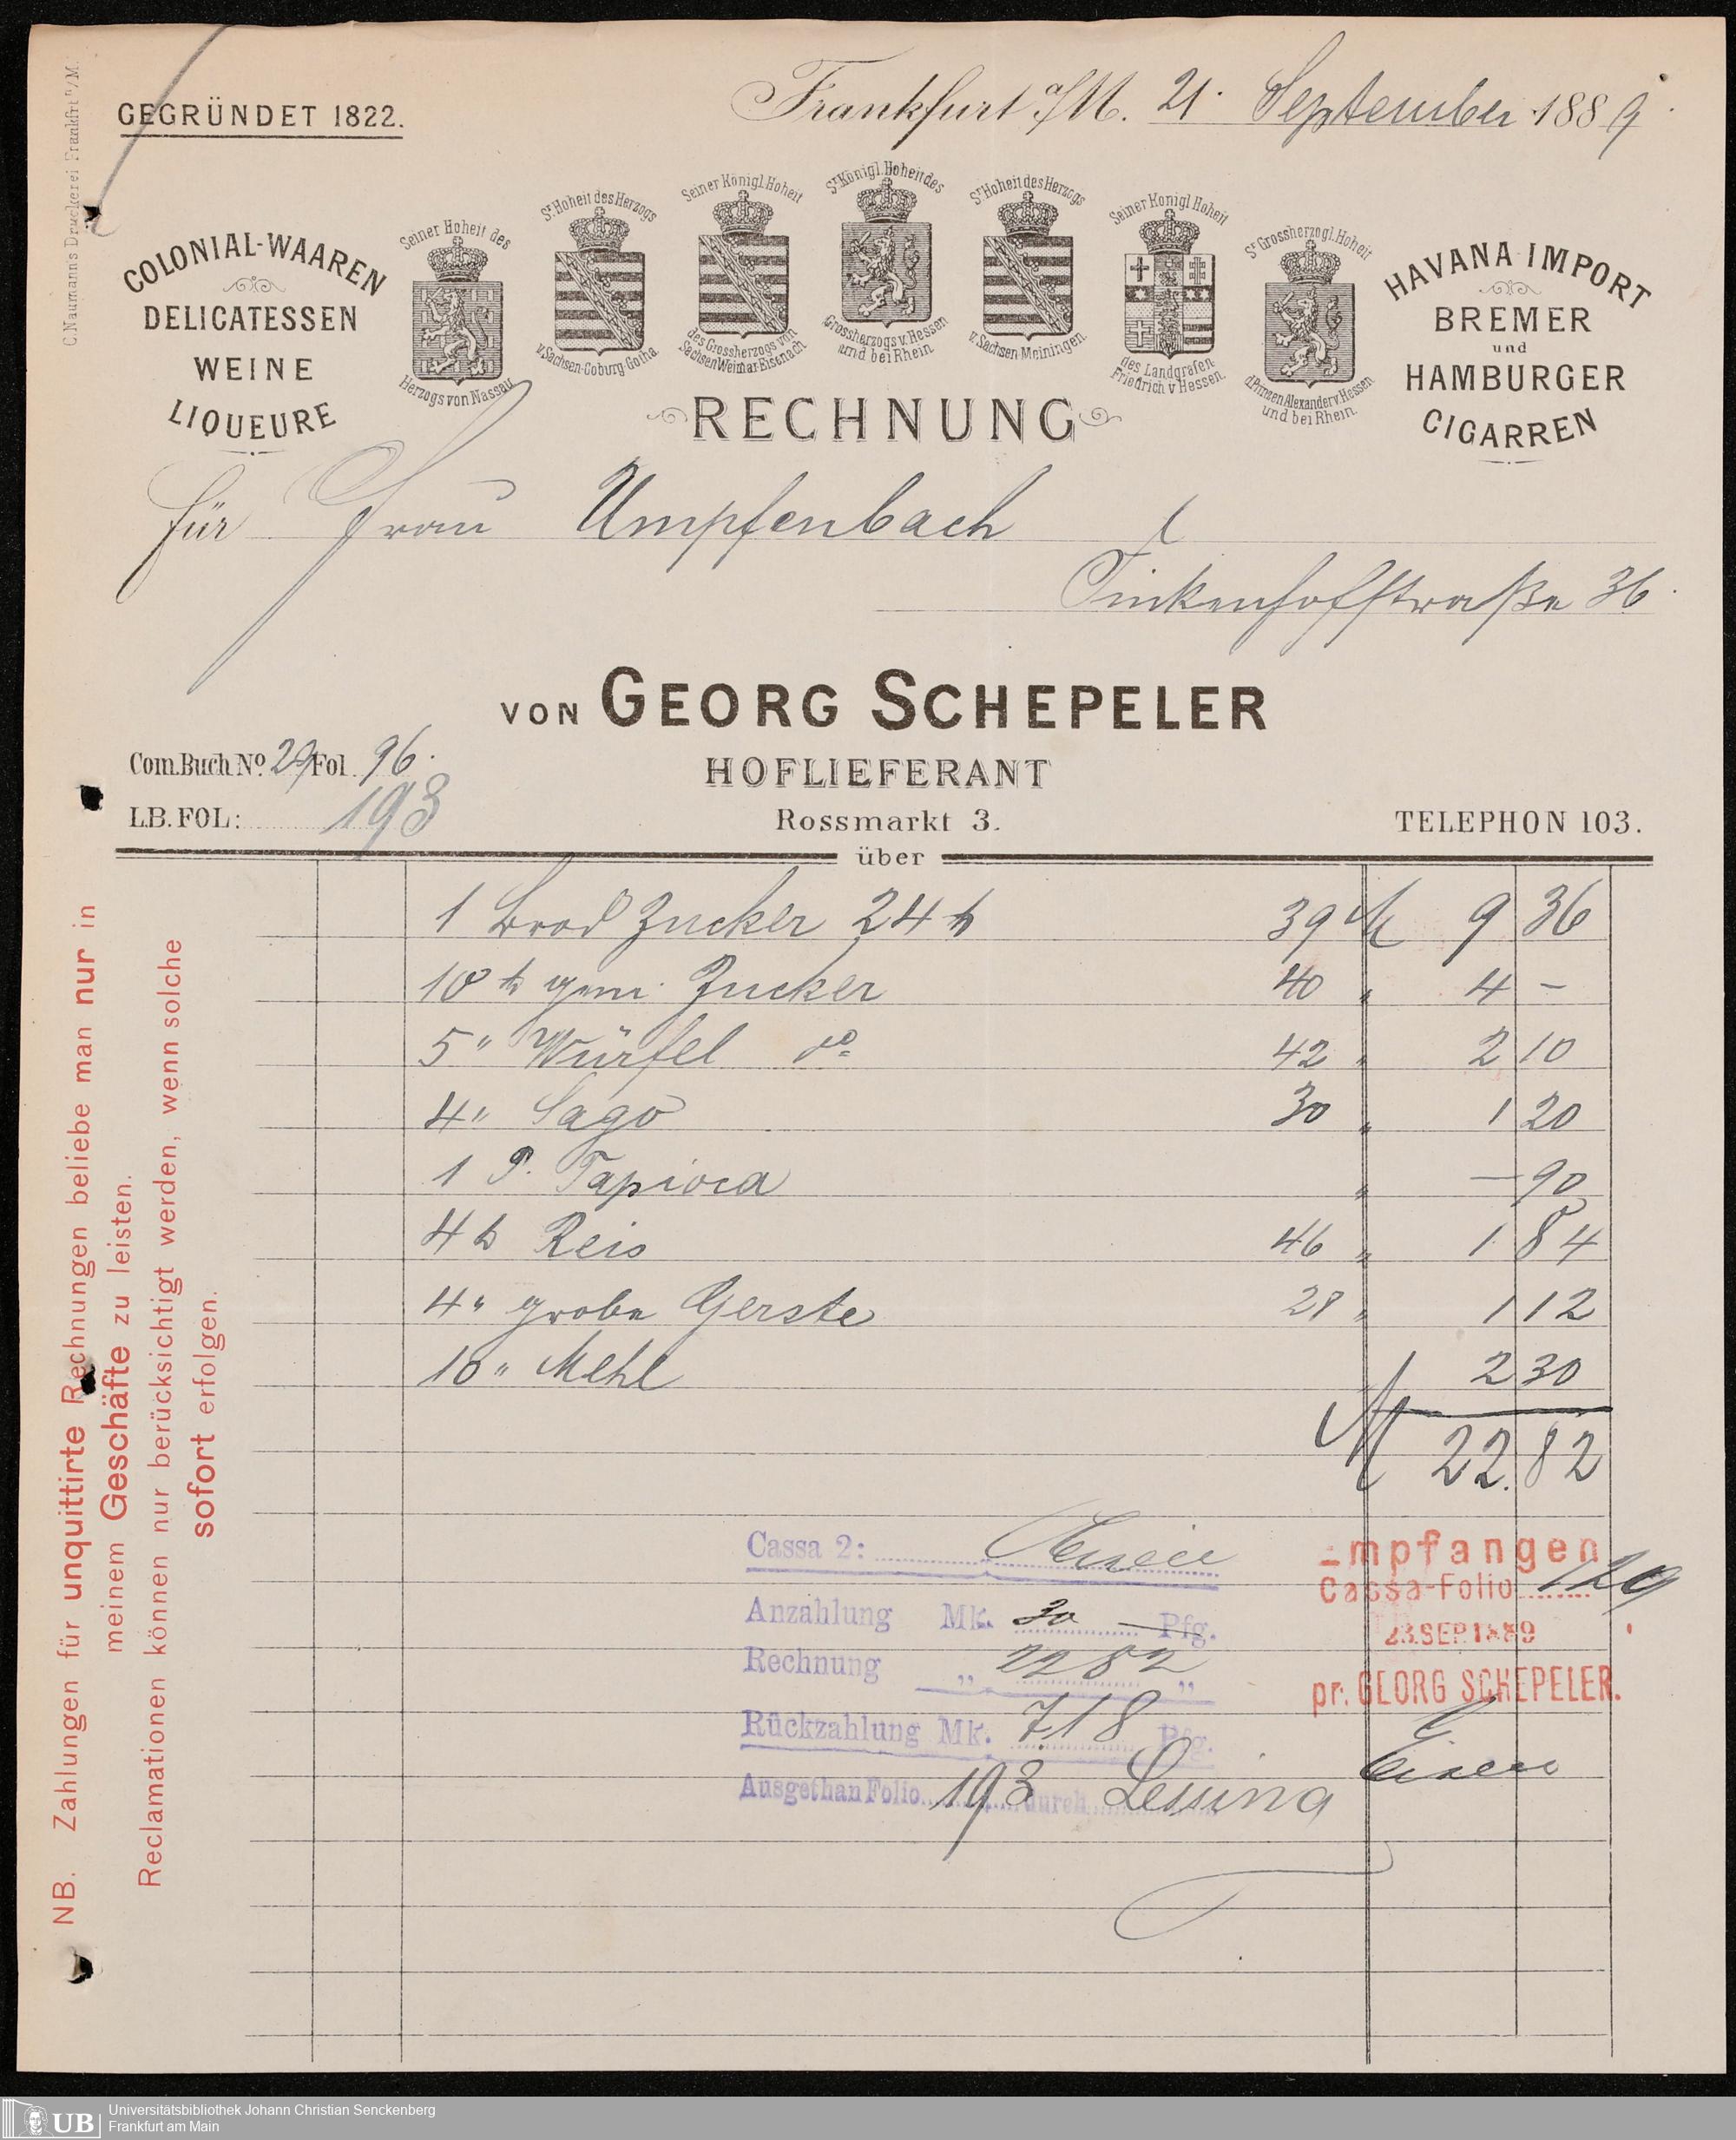 C. Naumann's Druckerei Frankfurt a/M.
GEGRÜNDET 1822.
Frankfurt a/M. 21. September 1889.
COLONIAL-WAAREN
DELICATESSEN
WEINE
LIQUEURE
Seiner Hoheit des
Herzogs von Nassau
Sr. Hoheit des Herzogs
v. Sachsen-Coburg-Gotha
Seiner Königl. Hoheit
des Grossherzogs von
Sachsen Weimar-Eisenach
Sr. Königl. Hoheit des
Grossherzogs v. Hessen
und bei Rhein.
Sr. Hoheit des Herzogs
v. Sachsen-Meiningen.
Seiner Königl Hoheit
des Landgrafen
Friedrich v Hessen.
Sr. Grossherzogl. Hoheit
d. Prinzen Alexander v. Hessen
und bei Rhein.
HAVANA IMPORT
BREMER
und
HAMBURGER
CIGARREN
RECHNUNG
für Frau Umpfenbach
Finkenhofstraße 36.
VON GEORG SCHEPELER
Com.Buch No. 29 Fol. 96.
HOFLIEFERANT
L.B.FOL: 193
Rossmarkt 3.
TELEPHON 103.
über
1 Brod Zucker 24 ℔ 39 ₰ 9 36
10 ℔ gem. Zucker 40 " 4 –
5 " Würfel do. 42 " 2 10
4 " Sago 30 " 1 20
1 P. Tapioca " – 90
4 ℔ Reis 46 " 1 84
4 " grobe Gerste 28 " 1 12
10 " Mehl 2 30
M 22.82
Cassa 2:
Anzahlung Mk. 30 — Pfg.
Rechnung " 22 82 "
Rückzahlung Mk. 7 18 Pfg.
Ausgethan Folio 193 durch Lessing
Empfangen
Cassa-Folio 129
23. SEP. 1889
pr. GEORG SCHEPELER.
NB. Zahlungen für unquittirte Rechnungen beliebe man nur in
meinem Geschäfte zu leisten.
Reclamationen können nur berücksichtigt werden, wenn solche
sofort erfolgen.
UB
Universitätsbibliothek Johann Christian Senckenberg
Frankfurt am Main